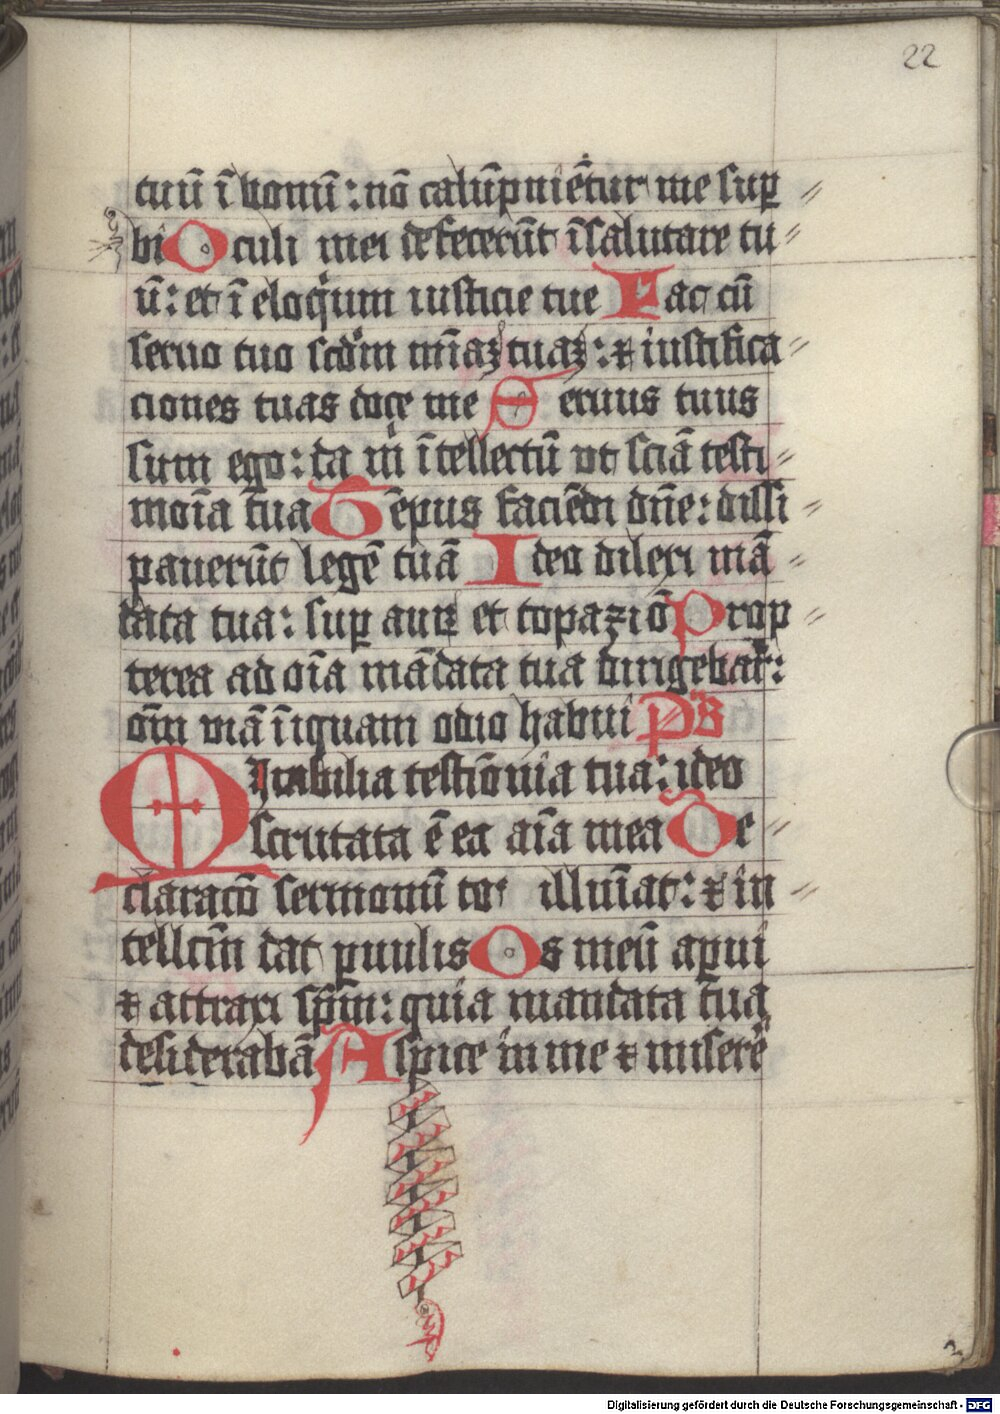 22
tuū ī bonū: nō calūpniētur me sup
bi Oculi mei defecerūt ī salutare tu
ū: et ī eloquium iusticie tue Fac cū
seruo tuo scdm mīaꝫ tuaꝫ: et iustifica
ciones tuas doce me Seruus tuus
sum ego: da mi ītellectū ut sciā testi
moīa tua Tēpus faciēdi dn̄e: dissi
pauerūt legē tuā Ideo dilexi mā
data tua: sup auꝝ et topaziō Prop
terea ad oīa mādata tua dirigebar:
om̄ viā īiquam odio habui Ps
Mirabilia testimonia tua: ideo
scrutata ē ea aīa mea De
claracō sermonū toꝝ illuīat: et in
tellcm̄ dat puulis Os meū apui
et attraxi spm̄: quia mandata tua
desiderabā Aspice in me et miserē
2
Digitalisierung gefördert durch die Deutsche Forschungsgemeinschaft - DFG